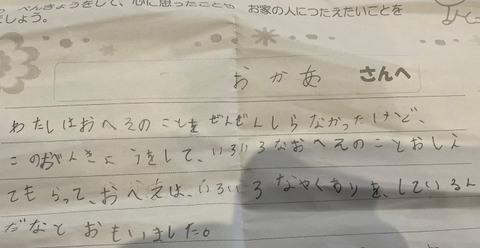 べんきょうをして、心に思ったことや お家の人につたえたいことを
しょう。
おかあ さんへ
わたしはおへそのことをぜんぜんしらなかったけど、
このおべんきょうをして、いろいろなおへえのことおしえ
てもらって、おへえは、いろいろなやくわりを、しているん
だなとおもいました。